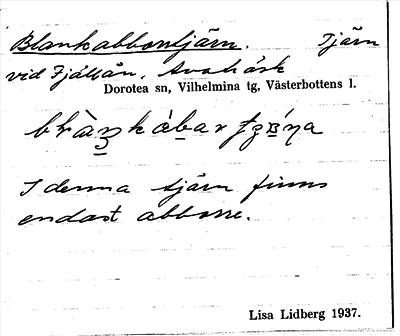 Blankabborrtjärn. Tjärn
vid Fjällån, Avaträsk
Dorotea sn, Vilhelmina tg, Västerbottens l.
I denna tjärn finns
endast abborre.
Lisa Lidberg 1937.